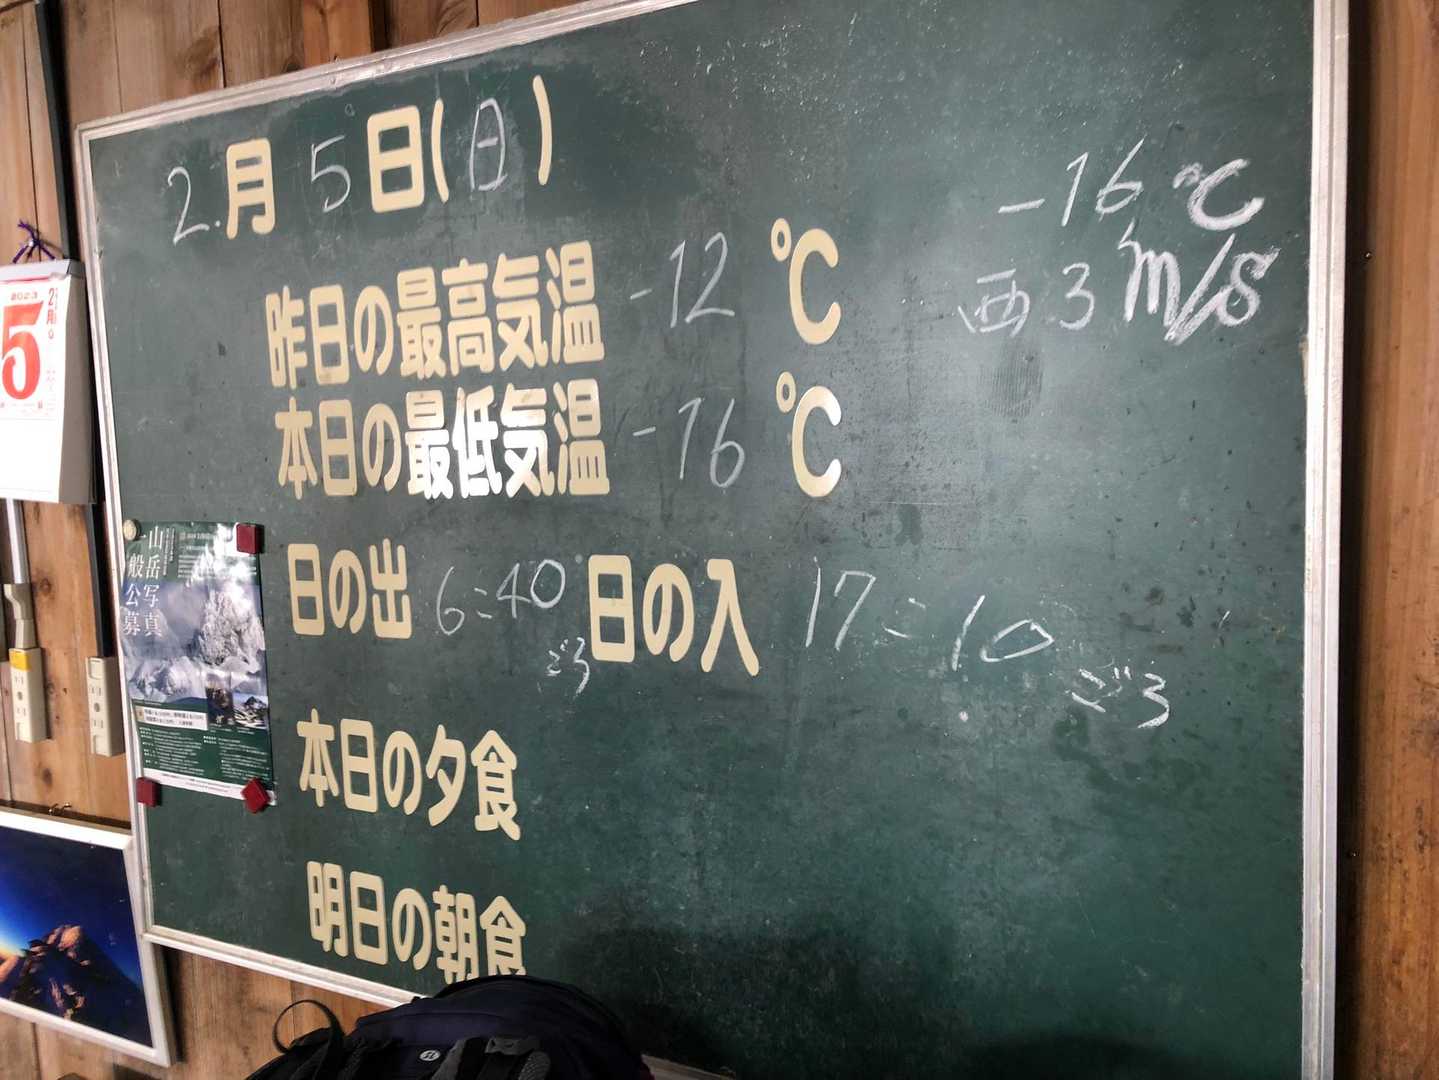 2.月5日(日)
-16℃
西3m/s
昨日の最高気温 -12℃
本日の最低気温 -16℃
日の出 6:40ごろ 日の入 17:10ごろ
本日の夕食
明日の朝食
2023
2月
5
山岳写真
一般公募